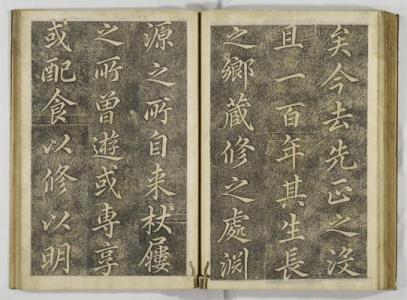 矣今去先正之沒
且一百年其生長
之鄉藏修之處淵
源之所自来杖屨
之所曾遊或專享
或配食以修以明